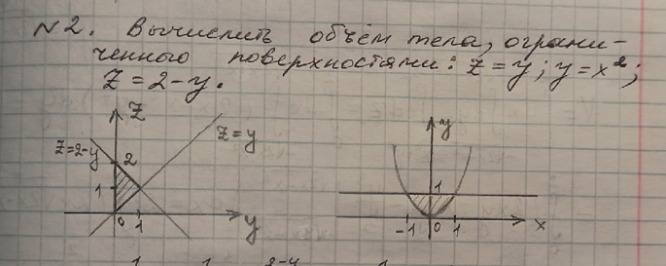 №2. Вычислить объём тела, ограни-
ченного поверхностями: z=y; y=x²;
z=2-y.
z
z=y
z=2-y
2
1
0
1
y
y
1
-1
0
1
x